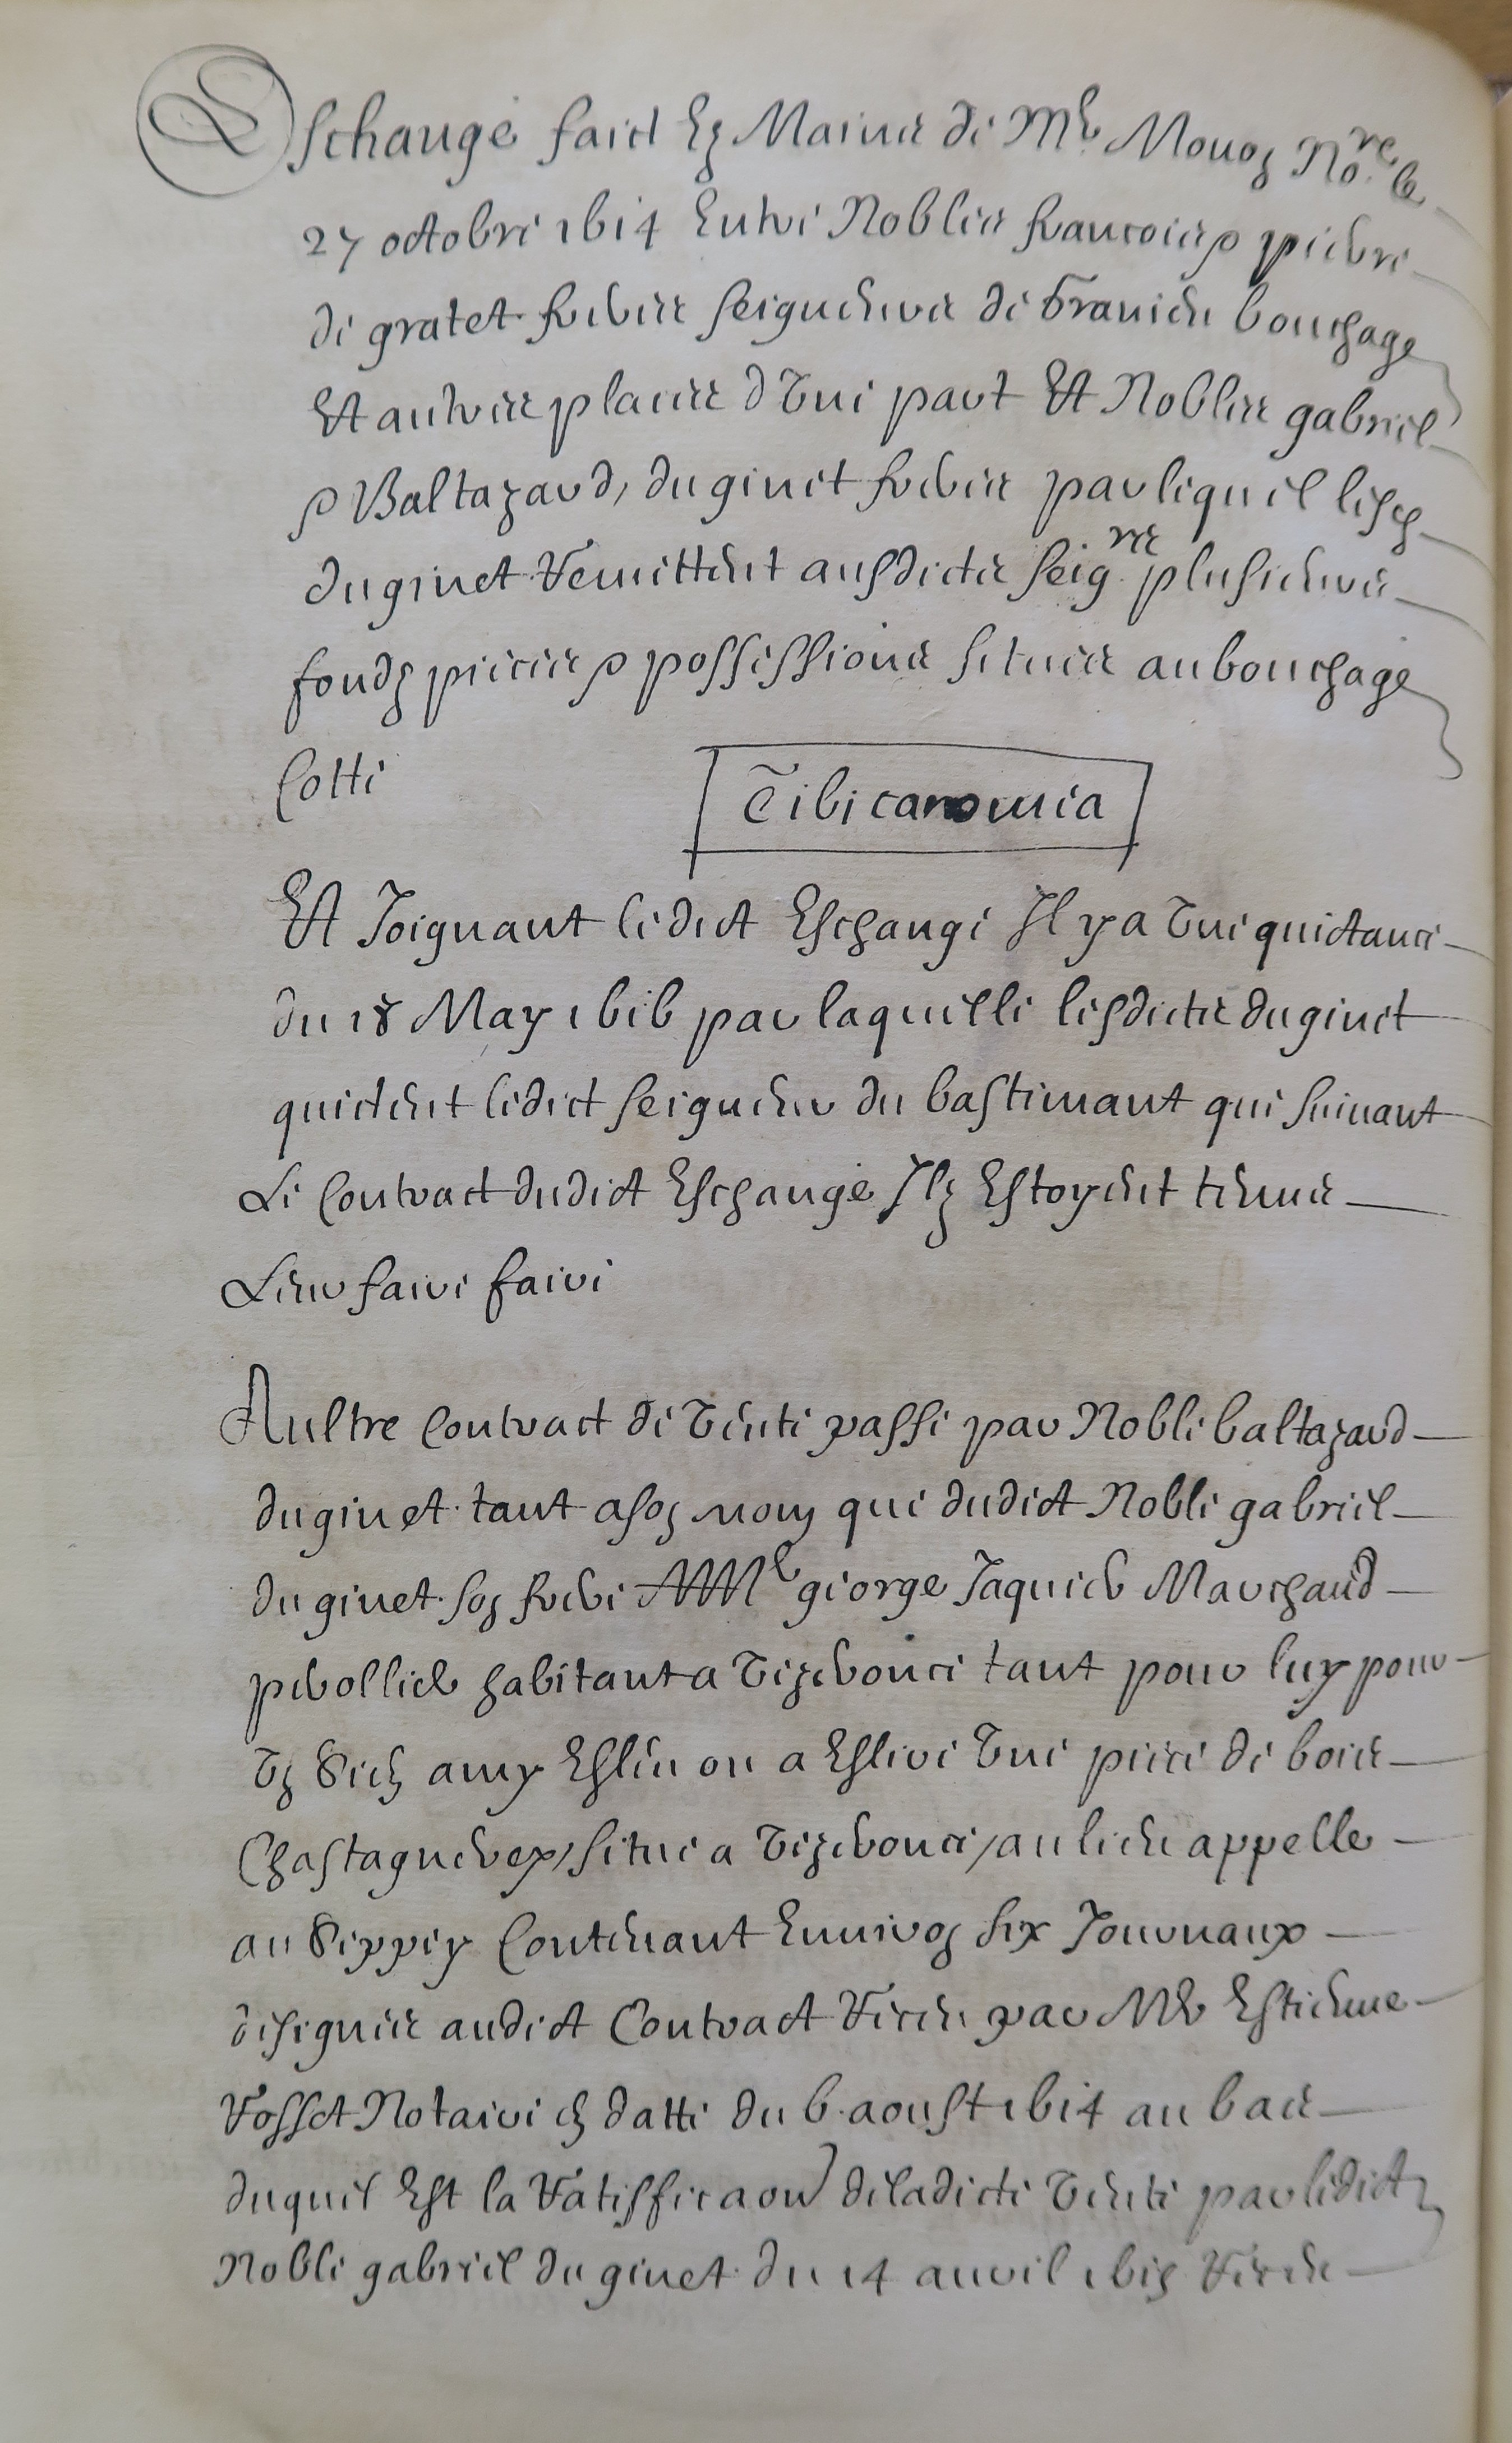 Eschange faict Ez Mains de Me Monoz Nore le
27 octobre 1614 Entre Nobles francois & pierre
de gratet freres seigneurs de Granieu bouchage
Et autres places d'Une part Et Nobles gabriel
& Baltazard, duginet freres par lequel lesdz
duginet Remittent ausdicts seigrs plusieurs
fondz pieces & possessions situés au bouchage
Cotté
Tibicanomia
Et Joignant ledict Eschange Il y a Une quictance
du 18 May 1616 par laquelle lesdicts duginet
quictent ledict seigneur du bastimant que suivant
Le Contract dudict Eschange Ilz Estoyent tenus
Leur faire faire
Aultre Contract de Vente passé par Noble baltazard
duginet tant a son nom que dudict Noble gabriel
du ginet son frere A Me george Jaquier Marchand
perollier habitant a Vezeronce tant pour luy pour
Un Sien amy Esleu ou a Eslire Une piece de bois
Chastagnerex, situé a Vezeronce, au lieu appelle
au Seppey Contenant Environ six Journaux
designés audict Contract Receu par Me Estienne
Rosset Notaire en datte du 6 aoust 1614 au bas
duquel Est la Ratifficaon de ladicte Vente par ledict
Noble gabriel du ginet du 14 avril 1615 Receu